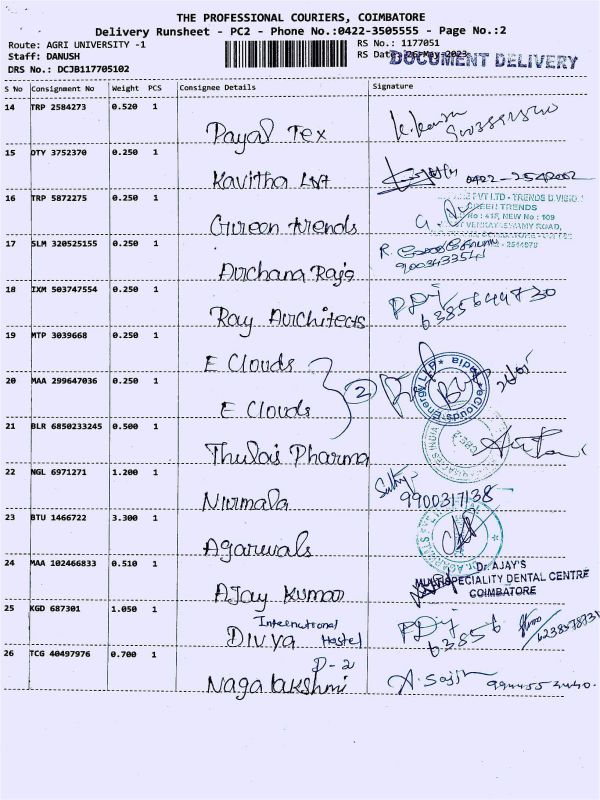 THE PROFESSIONAL COURIERS, COIMBATORE
Delivery Runsheet - PC2 - Phone No.:0422-3505555 - Page No.:2
Route: AGRI UNIVERSITY -1
RS No.: 1177051
Staff: DANUSH
RS Date: 26-May-2023
DOCUMENT DELIVERY
DRS No.: DCJB117705102
S No Consignment No Weight PCS Consignee Details Signature
14 TRP 2584273 0.520 1
Payal Tex
15 DTY 3752370 0.250 1
Kavitha 0422-2542002
16 TRP 5872275 0.250 1
PVT LTD - TRENDS DIVISION
GREEN TRENDS
No : 41F, NEW No : 109
Green trends
17 SLM 320525155 0.250 1
R.
Archana Raje
18 IXM 503747554 0.250 1
Ray Architects
6385644730
19 MTP 3039668 0.250 1
E Clouds
20 MAA 299647036 0.250 1
2
eClouds Energy LLP
E Clouds
21 BLR 6850233245 0.500 1
Thulasi Pharma
22 NGL 6971271 1.200 1
9900317138
Nirmala
23 BTU 1466722 3.300 1
Agarwals
24 MAA 102466833 0.510 1
Dr. AJAY'S
MULTISPECIALITY DENTAL CENTRE
COIMBATORE
Ajay Kumar
25 KGD 687301 1.050 1
International
Divya Hostel
63856
26 TCG 40497976 0.700 1
P-2
Nagalakshmi
A. Sajin